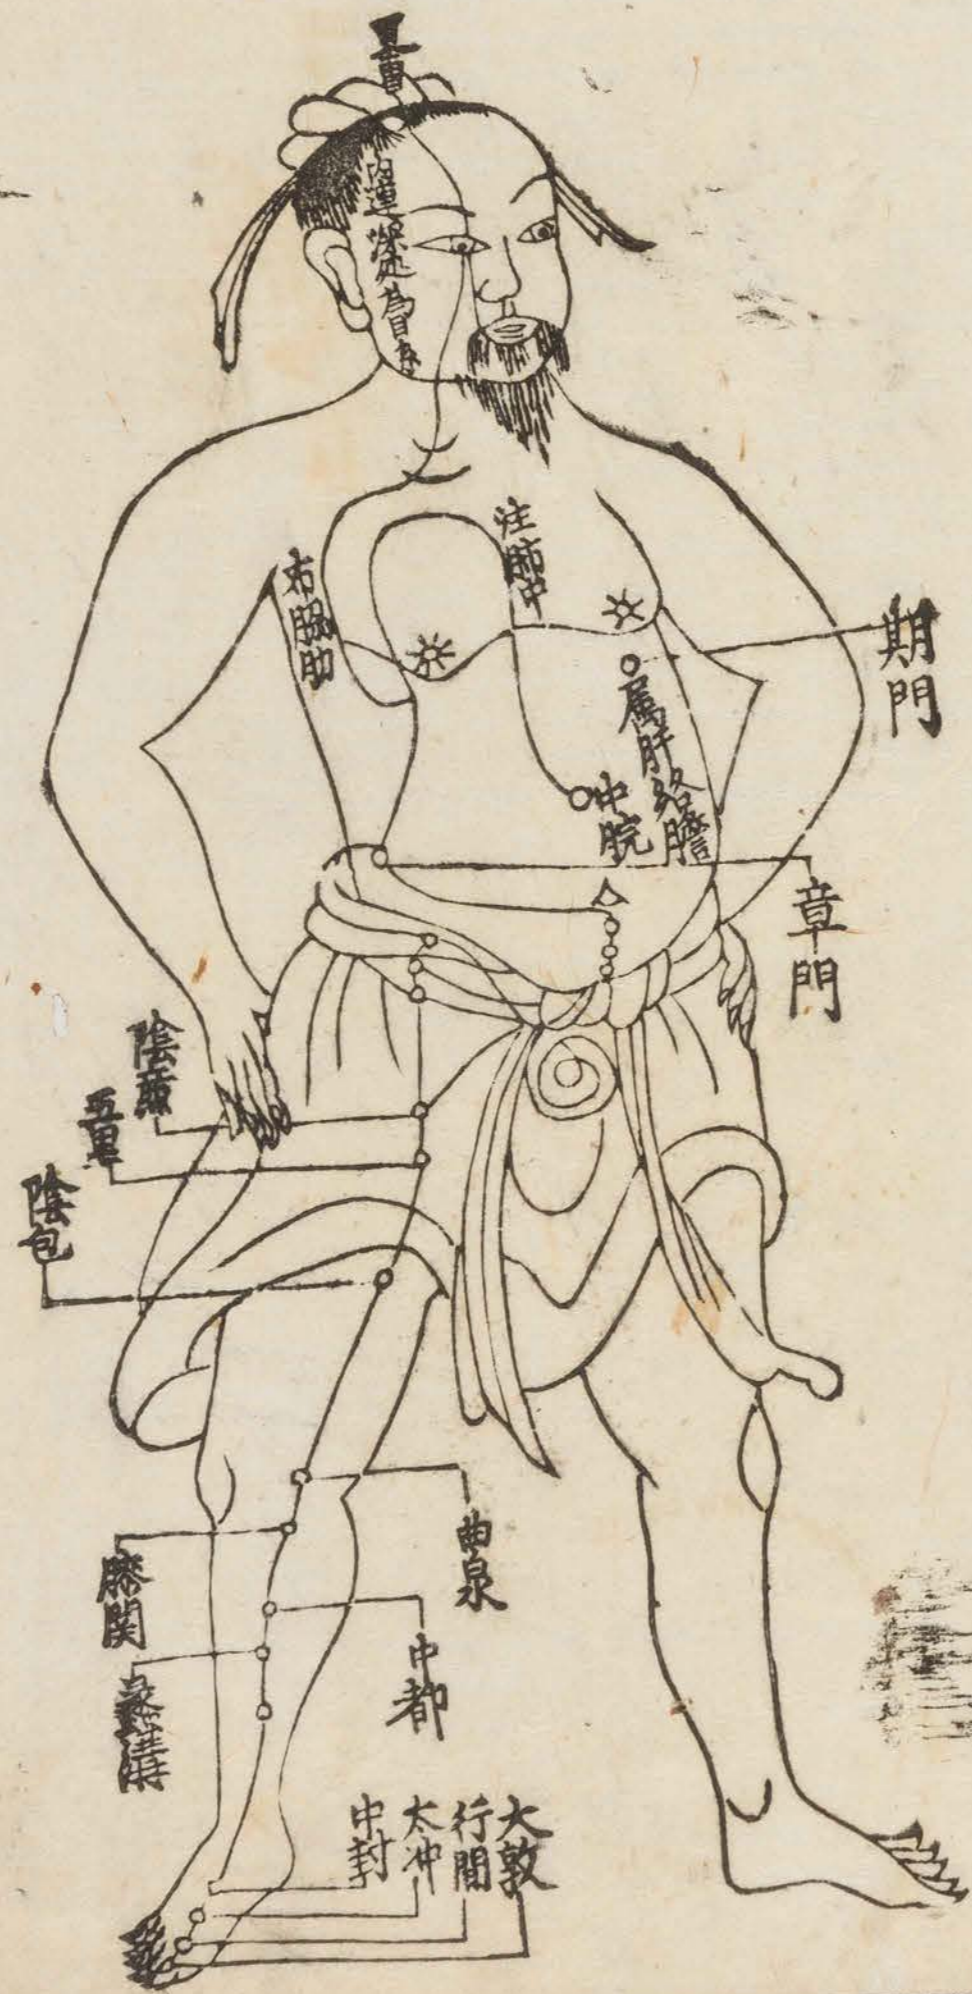 百會
内連深处為目系
注肺中
布脇肋
期門
属肝
絡膽
中脘
章門
陰廉
五里
陰包
曲泉
膝関
中都
蠡溝
大敦
行間
太冲
中封